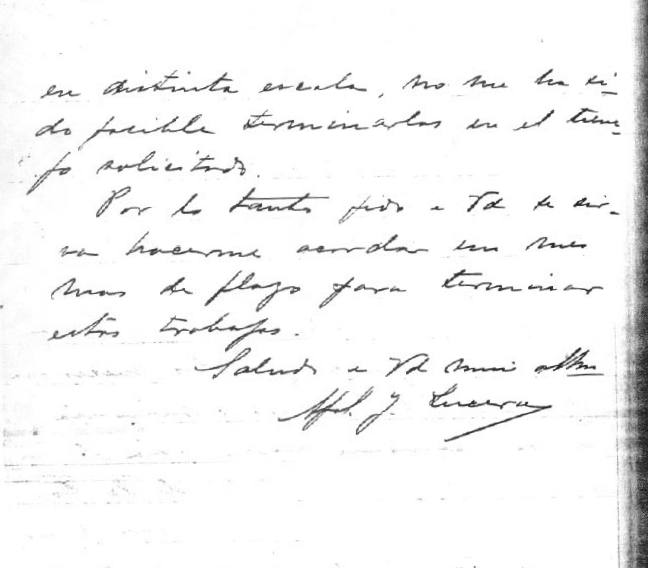 en distinta escala, no me ha si-
do posible terminarlos en el tiem-
po solicitado.
Por lo tanto pido a Vd se sir-
va hacerme acordar un mes
mas de plazo para terminar
estos trabajos.
Saludo a Vd muy attm
J. Lucero